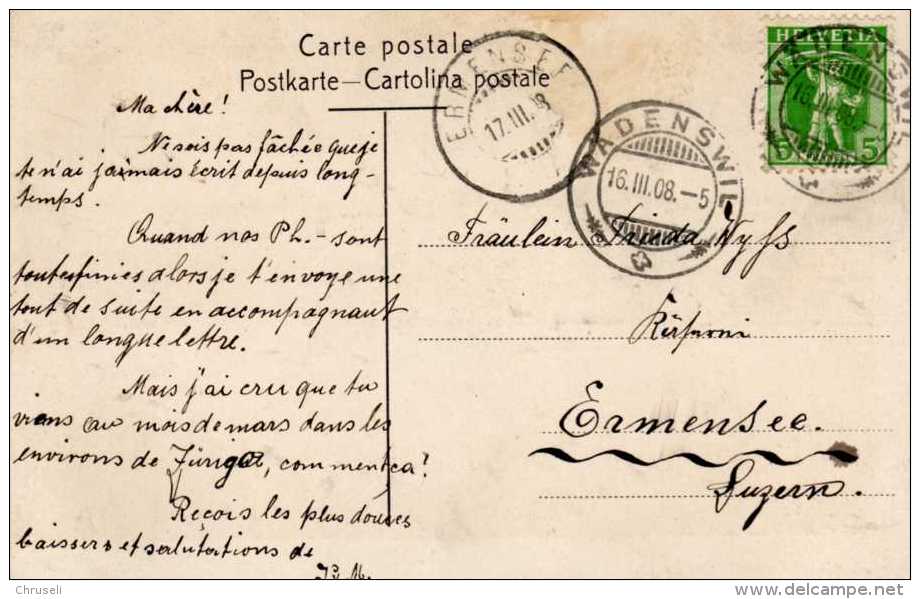 Carte postale
Postkarte—Cartolina postale
HELVETIA
5 5
WÄDENSWIL
16.III.08.
ERMENSEE
17.III.08
WÄDENSWIL
16.III.08.-5
Ma chère!
Ne sois pas fâchée que je
te n'ai jamais écrit depuis long-
temps.
Quand nos Ph.- sont
toutes finies alors je t'envoye une
tout de suite en accompagnant
d'un longue lettre.
Mais j'ai cru que tu
viens au mois de mars dans les
environs de commentça?
Reçois les plus douces
baisers et salutations de
Fräulein Frieda Wyss
Ermensee.
Luzern.
Chruseli
delcampe.net